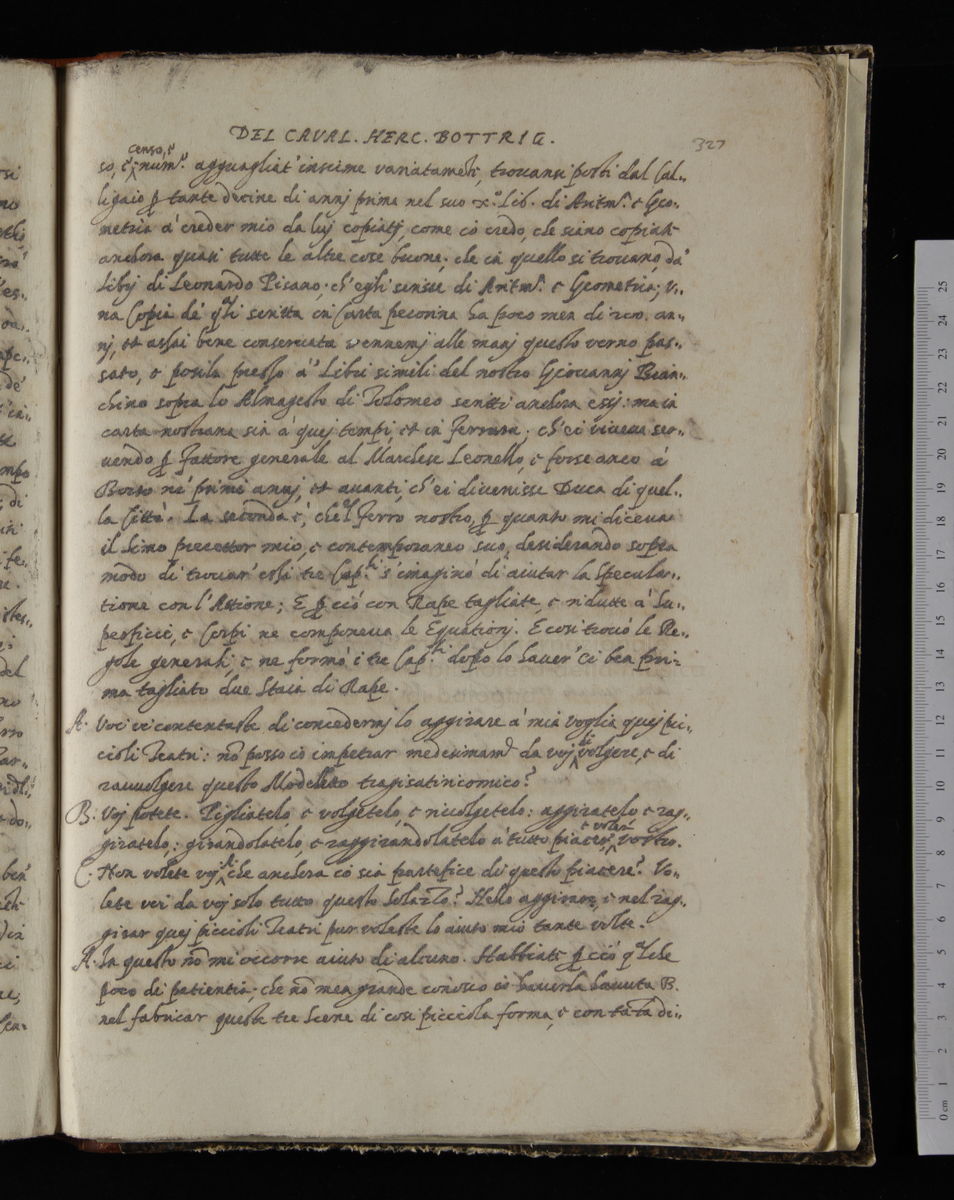 DEL CAVAL. HERC. BOTTRIG.
327
censo, e
so, e num.º agguagliat' insieme variatamẽte, trovansi posti dal Cal-
ligaio ꝑ tante decine di annj prima nel suo x.º Lib. di Aritm.ª e Geo-
metria à creder mio da luj copiatj, come io credo, che siano copiate
anchora quasi tutte le altre cose buone, che in quello si trovano, da'
Librj di Leonardo Pisano, ch'egli scrisse di Aritm.ª e Geometria; v-
na Copia de' q̃li scritta in Carta pecorina ha poco men di 200. an-
nj, et assai bene conservata vennemj alle manj questo verno pas-
sato, e posila presso a' Libri simili del nostro Giovannj Bian-
chino sopra lo Almagesto di Tolomeo scritti anchora essj: ma in
carta nostrana sin à quej tempi, et in Ferrara, ch'ei viveva ser-
vendo ꝑ Fattore generale al Marchese Leonello, e forse anco à
Borso ne' primi annj, et avanti, ch'ei divenisse Duca di quel-
la Città. La seconda è, che'l Ferro nostro, ꝑ quanto mi diceva
il primo precettor mio, e contemporaneo suo, desiderando sopra
modo di trovar' essi tre Cap.li s'imaginò di aiutar la Specula-
tione con l'Attione; E ꝑ ciò con Rape tagliate, e ridutte à Su-
perficie, e Corpi ne componeva le Equationj. E così trovò le Re-
gole generali, e ne formò i tre Cap.li dopo lo haver' ei ben pri-
ma tagliato due Staia di Rape.
A. Voi vi contentaste di concedermj lo aggirare à mia voglia quej pic-
cioli Teatri: nõ posso io impetrar medesimamẽ da voj di volgere, e di
ravvolgere questo Modelletto tragisatiricomico?
B. Voj potete. Pigliatelo, e volgetelo, e rivolgetelo: aggiratelo, e rag-
giratelo,: girandolatelo, e raggirandolatelo à tutto piacer, e voler vostro.
C. Non volete voj, che anchora io sia partefice di questo piacere? Vo-
lete voi da voj solo tutto questo Solazzo? Nello aggirare, e nel rag-
girar quej piccioli Teatri pur voleste lo aiuto mio tante volte.
A. In questo nõ mi occorre aiuto di alcuno. Habbiate ꝑ ciò q̃lche
poco di patientia, che nõ men grande conosco io haverla havuta B.
nel fabricar queste tre Scene di così picciola forma, e con tãta di-